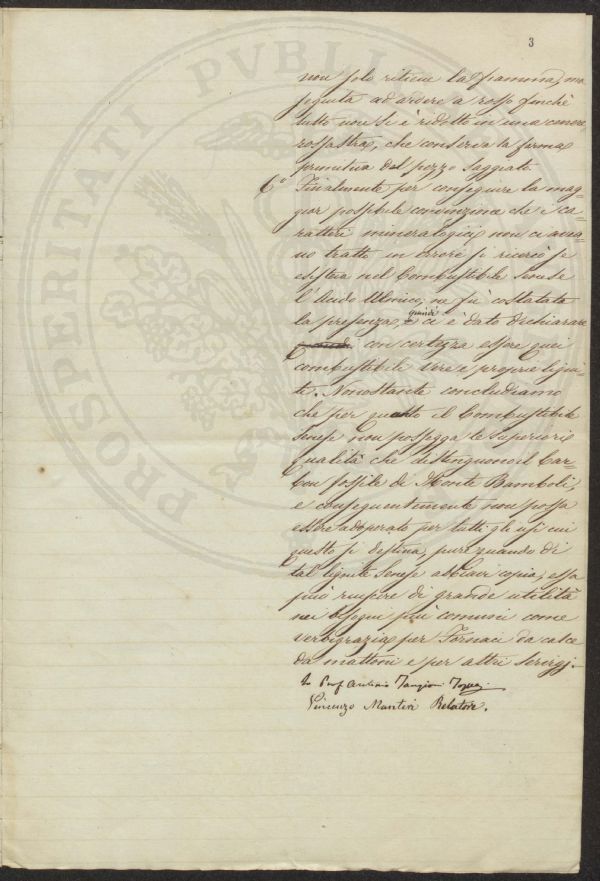 3
non solo ritiene la fiamma, ma
seguita ad ardere a rosso finchè
tutto non si è ridotto in una cenere
rossastra, che conserva la forma
primitiva del pezzo saggiato.
6° Finalmente per conseguire la mag=
gior possibile convinzione che i ca=
ratteri mineralogici non ci aveva=
no tratto in errore si ricercò se
esisteva nel Combustibile Senese
l'Acido Ulmico; ne fu costatata
la presenza, e quindi ci è dato dichiarare
con certezza essere quei
combustibile vere e proprie ligni=
ti. Nonostante concludiamo
che per quanto il Combustibile
Senese non possegga le superiori
qualità che distinguono il Car=
bon fossile di Monte Bamboli,
e conseguentemente non possa
essere adoperato per tutti gli usi cui
questo si destina, pure quando di
tal lignite Senese abbiavi copia, essa
può riuscire di grande utilità
nei bisogni più comuni come
verbigrazia per Fornaci da calce
da mattoni e per altri servizj.
Prof Antonio Targioni Tozzetti
Vincenzo Manteri Relatore.
PROSPERITATI PVBLIC